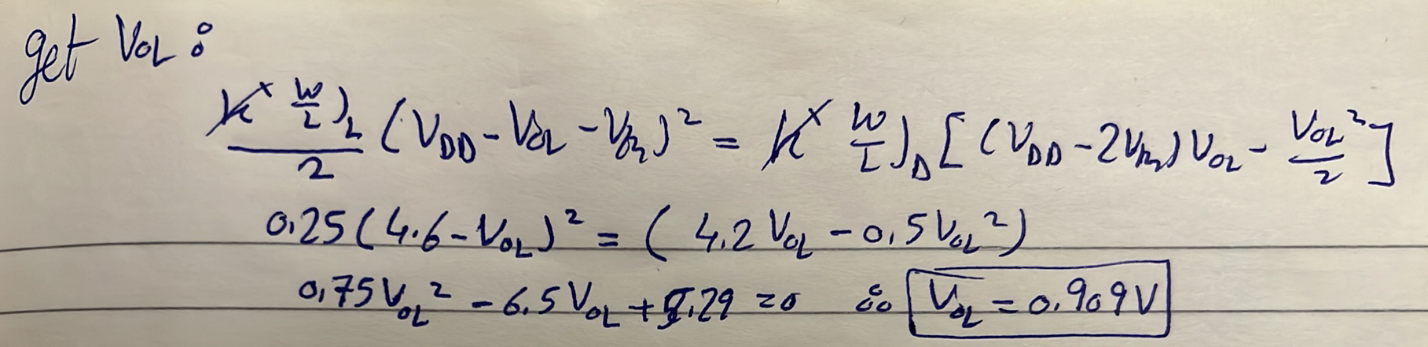 get VOL :
K' W/L)L / 2 (VDD - VOL - Vtn)² = K' W/L)D [(VDD - 2Vtn) VOL - VOL²/2]
0.25(4.6 - VOL)² = ( 4.2 VOL - 0.5 VOL²)
0.75 VOL² - 6.5 VOL + 5.29 = 0 ∴ VOL = 0.909V